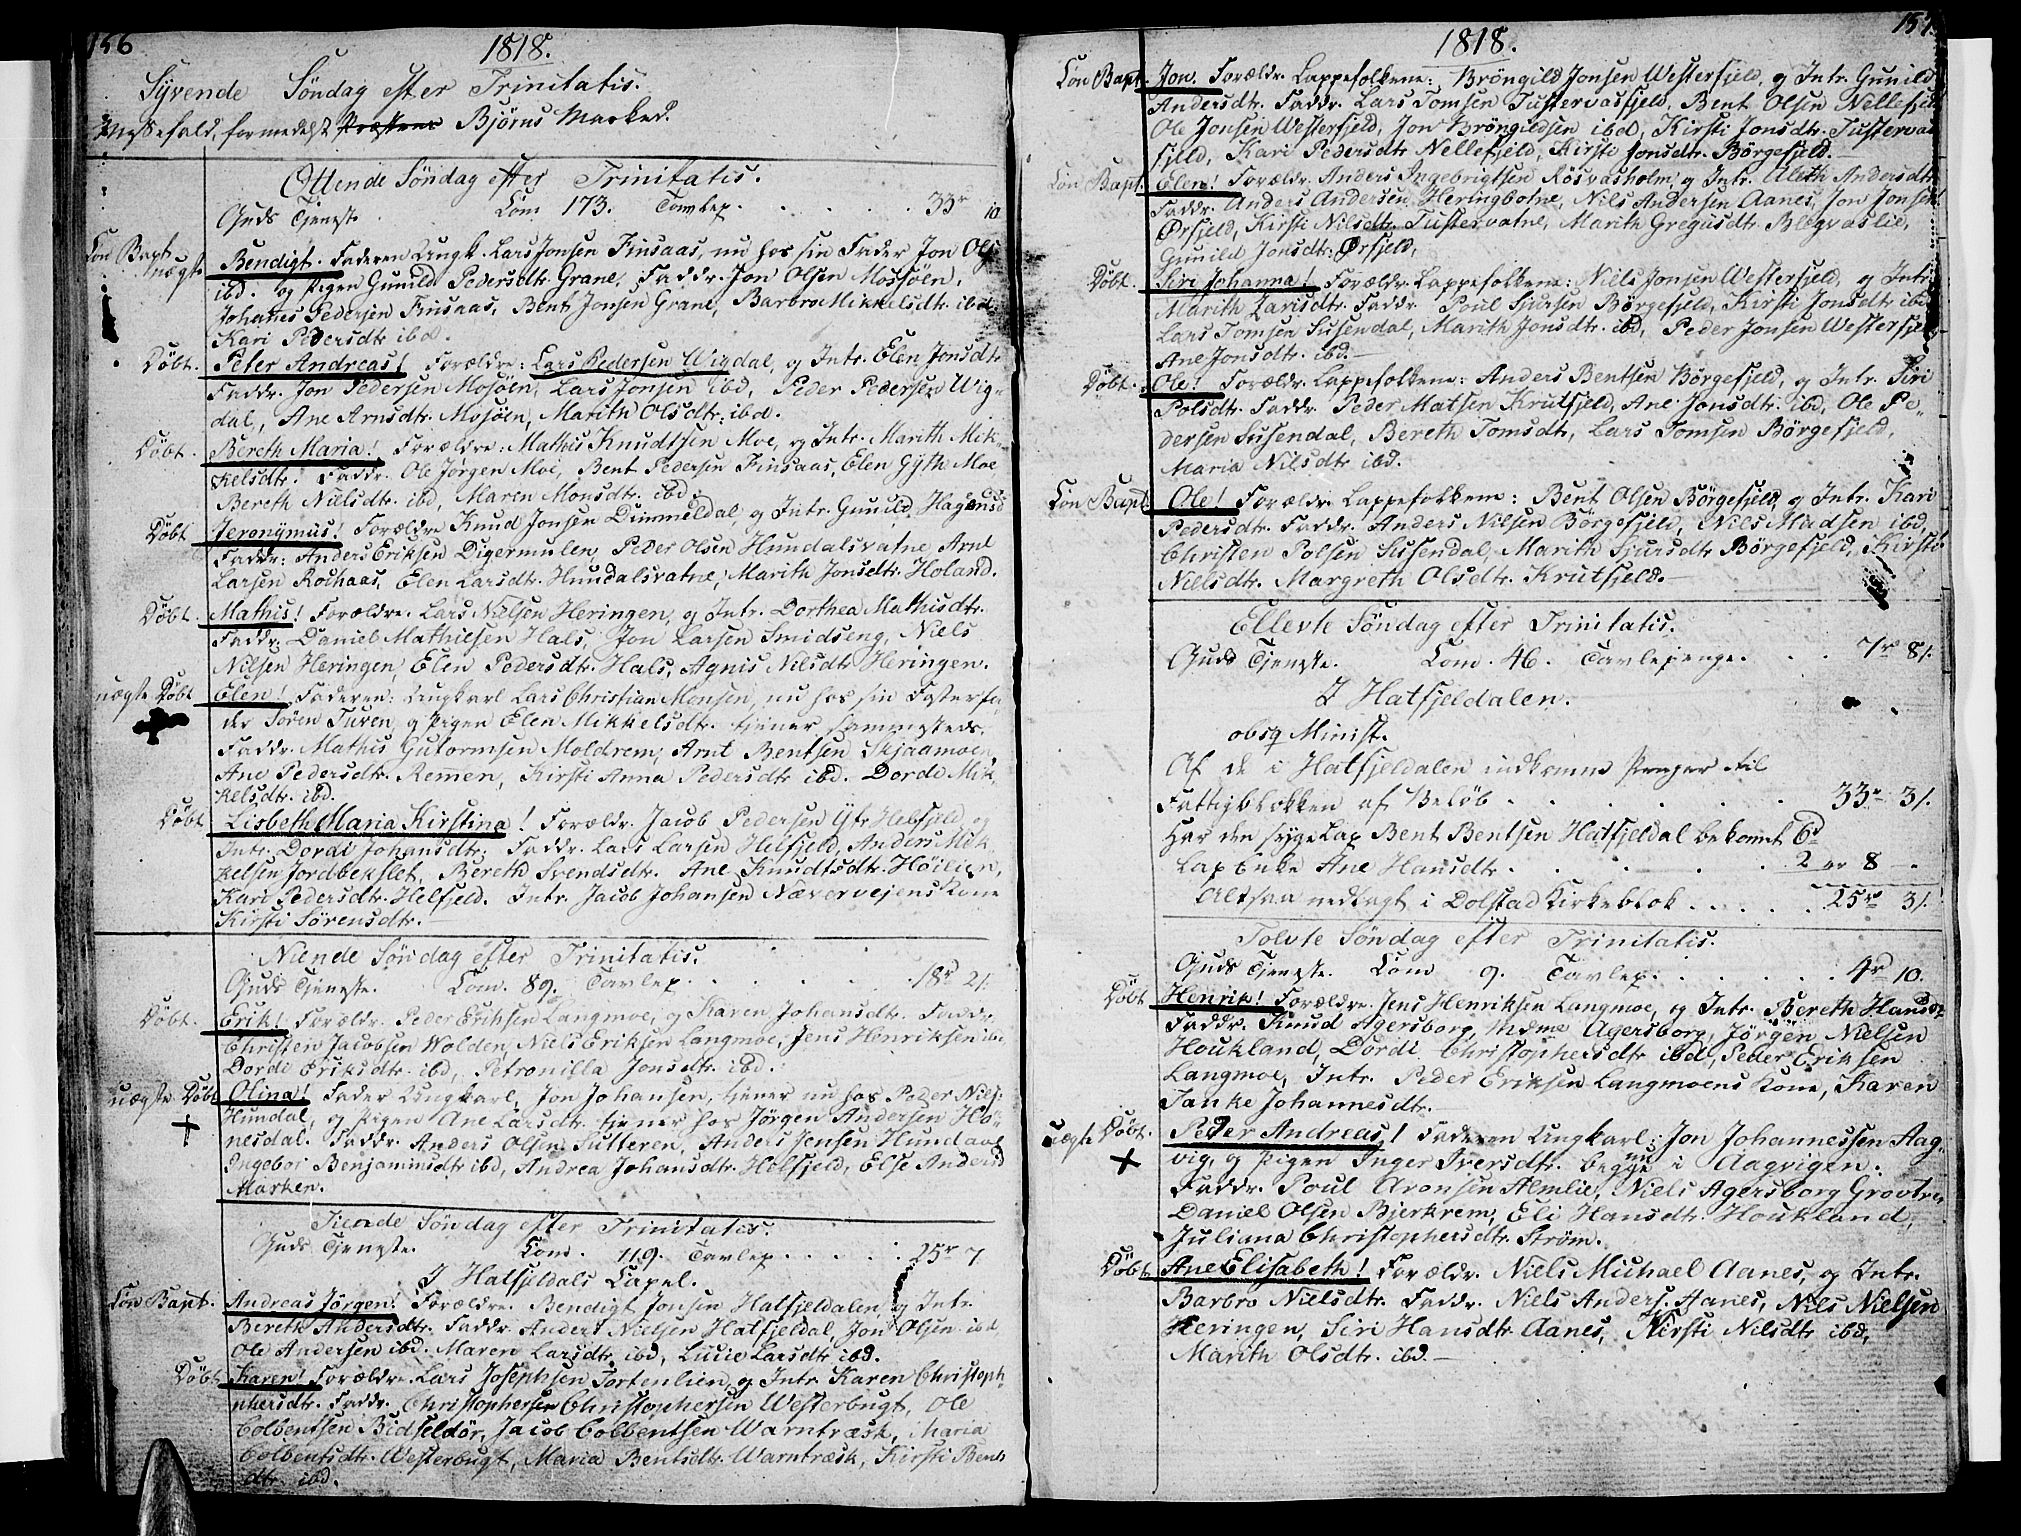 156
1818.
Syvende Søndag efter Trinitatis.
Messefald, formedelst Præstens Bjørns Marked.
Ottende Søndag efter Trinitatis.
Guds Tjeneste. Com 173. Tavlep. 33 r 10
Con Bapt. uægte Bendigt. Faderen Ungk. Lars Jonsen Finsaas, nu hos sin Fader Jon Ols
ibd. og Pigen Gunild Pedersdtr. Grane. Faddr. Jon Olsen Mossøen,
Johanes Pedersen Finsaas, Bent Jonsen Grane, Barbro Mikkelsdtr ibd
Kari Pedersdtr ibd.
Døbt. Peter Andreas! Forældre: Lars Pedersen Wigdal, og Intr. Elen Jonsdtr
Faddr. Jon Pedersen Mosøen, Lars Jonsen ibd, Peder Pedersen Wig-
dal, Ane Arnsdtr. Mosøen, Marith Olsdtr. ibd.
Døbt. Bereth Maria! Forældre: Mathis Knudtsen Moe, og Intr. Marith Mik-
kelsdtr. Faddr. Ole Jørgen Moe, Bent Pedersen Finsaas, Elen Gyth Moe
Bereth Nielsdtr. ibd, Maren Monsdtr. ibd.
Døbt Jeronymus! Forældre Knud Jonsen Dimmeldal, og Intr. Gunild Hagensd
Faddr: Anders Eriksen Digermulen, Peder Olsen Hundalsvatne, Arnt
Larsen Rochaas, Elen Larsdtr. Hundalsvatne, Marith Jonsdtr. Holand.
Døbt. Mathis! Forældre. Lars Nielsen Heringen, og Intr. Dorthea Mathisdtr.
Faddr. Daniel Mathiesen Hals, Jon Larsen Smidseng, Niels
Nilsen Heringen, Elen Pedersdtr. Hals, Agnis Nilsdtr Heringen.
uægte Døbt Elen! Faderen: Ungkarl Lars Christian Monsen, nu hos sin Fosterfa-
der Søren Turen, og Pigen Elen Mikkelsdtr. tjener sammesteds.
Faddr. Mathis Gutormsen Moldrem, Arnt Bentsen Skjaamoen,
Ane Pedersdtr. Remen, Kirsti Anna Pedersdtr ibd. Dorde Mik-
kelsdtr. ibd.
Døbt Lisbeth Maria Kirstina! Forældr. Jacob Pedersen Helfjeld, og
Intr. Dordi Johansdtr. Faddr. Lars Larsen Helfjeld, Anders Mik-
kelsen Jordbekslet, Bereth Svendsdtr. Ane Knudtsdtr. Høilien,
Kari Pedersdtr. Helfjeld. Intr. Jacob Johansen Nævervejens Kone
Kirsti Sørensdtr.
Niende Søndag efter Trinitatis.
Guds Tjeneste. Com. 89. Tavlep. 18 r 2/.
Døbt. Erik! Forældr. Peder Eriksen Langmoe, og Karen Johansdtr. Faddr.
Christen Jacobsen Wolden, Niels Eriksen Langmoe, Jens Henriksen ibd,
Dorde Eriksdtr. ibd, Petronilla Jonsdtr. ibd.
uægte Døbt Olina! Fader Ungkarl, Jon Johansen, tjener nu hos Peder Niels:
Hundal, og Pigen Ane Larsdtr. tjener hos Jørgen Andersen Hø-
nesdal. Faddr. Anders Olsen Sutteren, Anders Jensen Hundaal
Ingebor Benjaminsdtr ibd, Andrea Johansdtr. Helfjeld, Else Andersd
Marken.
Tiende Søndag efter Trinitatis.
Guds Tjeneste. Com. 119. Tavlep. 25 r 7
I Hatfjeldals Capel.
Con Bapt. Andreas Jørgen. Forældre. Bendigt Jonsen Hatfjeldalen, og Intr.
Bereth Andersdtr. Faddr. Anders Nielsen Hatfjeldal, Jon Olsen ibd
Ole Andersen ibd. Maren Larsdtr. ibd, Lucie Larsdtr ibd.
Døbt Karen! Forældre. Lars Josephsen Tortenlien, og Intr. Karen Christoph-
hersdtr. Faddr. Christophersen Christophersen Westerbugt, Ole
Colbentsen Bidseldør, Jacob Colbentsen Warntræsk, Maria
Colbentsdtr. Westerbugt, Maria Bentsdtr. Warntræsk, Kirsti Bents
dtr. ibd.
157
1818.
Con Bapt. Jon. Forældr. Lappefolkene: Brøngild Jonsen Westerfjeld, og Intr. Gunild
Andersdtr. Faddr. Lars Tomsen Tustervasfjeld, Bent Olsen Nellefjeld
Ole Jonsen Westerfjeld, Jon Brøngildsen ibd, Kirsti Jonsdtr. Tusterva
fjeld, Kari Pedersdtr Nellefjeld, Kirsti Jonsdtr. Børgefjeld.
Con Bapt. Elen! Forældr. Anders Ingebrigtsen Røsvasholm, og Intr. Aleth Andersdtr.
Faddr. Anders Andersen Heringbotne, Nils Andersen Aanes, Jon Jonsen
Ørfjeld, Kirsti Nilsdtr. Tustervatne, Marith Gregusdtr Blegvaslie,
Gunild Jonsdtr. Ørfjeld,
Døbt. Siri Johanna! Forældr. Lappefolkene: Nills Jonsen Westerfjeld, og Intr.
Marith Larisdtr. Faddr Poul Sjursen Børgefjeld, Kirsti Jonsdtr ibd
Lars Tomsen Susendal, Marith Jonsdtr. ibd, Peder Jonsen Westerfje
Ane Jonsdtr. ibd.
Døbt. Ole! Forældr. Lappefolkene: Anders Bentsen Børgefjeld, og Intr. Siri
Polsdtr. Faddr. Peder Matsen Krutfjeld, Ane Jonsdtr. ibd, Ole Pe-
dersen Susendal, Bereth Tomsdtr, Lars Tomsen Børgefjeld,
Maria Nilsdtr ibd.
Con Bapt. Ole! Forældr. Lappefolkene: Bent Olsen Børgefjeld, og Intr. Kari
Pedersdtr. Faddr. Anders Nilsen Børgefjeld, Nils Madsen ibd,
Christen Polsen Susendal, Marith Sjursdtr Børgefjeld, Kirsti
Nielsdtr. Margreth Olsdtr. Krutfjeld.
Ellevte Søndag efter Trinitatis.
Guds Tjeneste. Com. 46. Tavlepenge. 7 r 8/.
I Hatfjeldalen.
obsq Minist.
Af de i Hatfjeldalen indkomne Penger til
Fattigblokken af Beløb 33 r 3/.
Har den syge Lap Bent Bentsen Hatfjeldal bekomt 6 d
Lap Enke Ane Hansdtr. 2 er 8
Altsaa nedlagt i Dolstad Kirkeblok 25 r 3/.
Tolvte Søndag efter Trinitatis.
Guds Tjeneste. Com 9. Tavlep. 4 r 10.
Døbt Henrik! Forældre. Jens Henriksen Langmoe, og Intr. Bereth Hansd
Faddr. Knud Agersborg, Madme Agersborg, Jørgen Nielsen
Houkland, Dordi Christophersdtr ibd, Peder Eriksen
Langmoe, Intr. Peder Eriksen Langmoens Kone, Karen
Tanke Johannesdtr.
uægte Døbt. Peder Andreas! Faderen Ungkarl: Jon Johannessen Aag-
vig, og Pigen Inger Iversdtr. begge nu i Aagvigen.
Faddr. Poul Aronsen Almlie, Niels Agersborg Grovtre
Daniel Olsen Bjerkrem, Eli Hansdtr. Houkland,
Juliana Christophersdtr. Strøm.
Døbt Ane Elisabeth! Forældr. Niels Michael Aanes, og Intr.
Barbro Nielsdtr. Faddr. Niels Anders. Aanes, Nils Nielsen
Heringen, Siri Hansdtr. Aanes, Kirsti Nilsdtr ibd,
Marith Olsdtr. ibd.